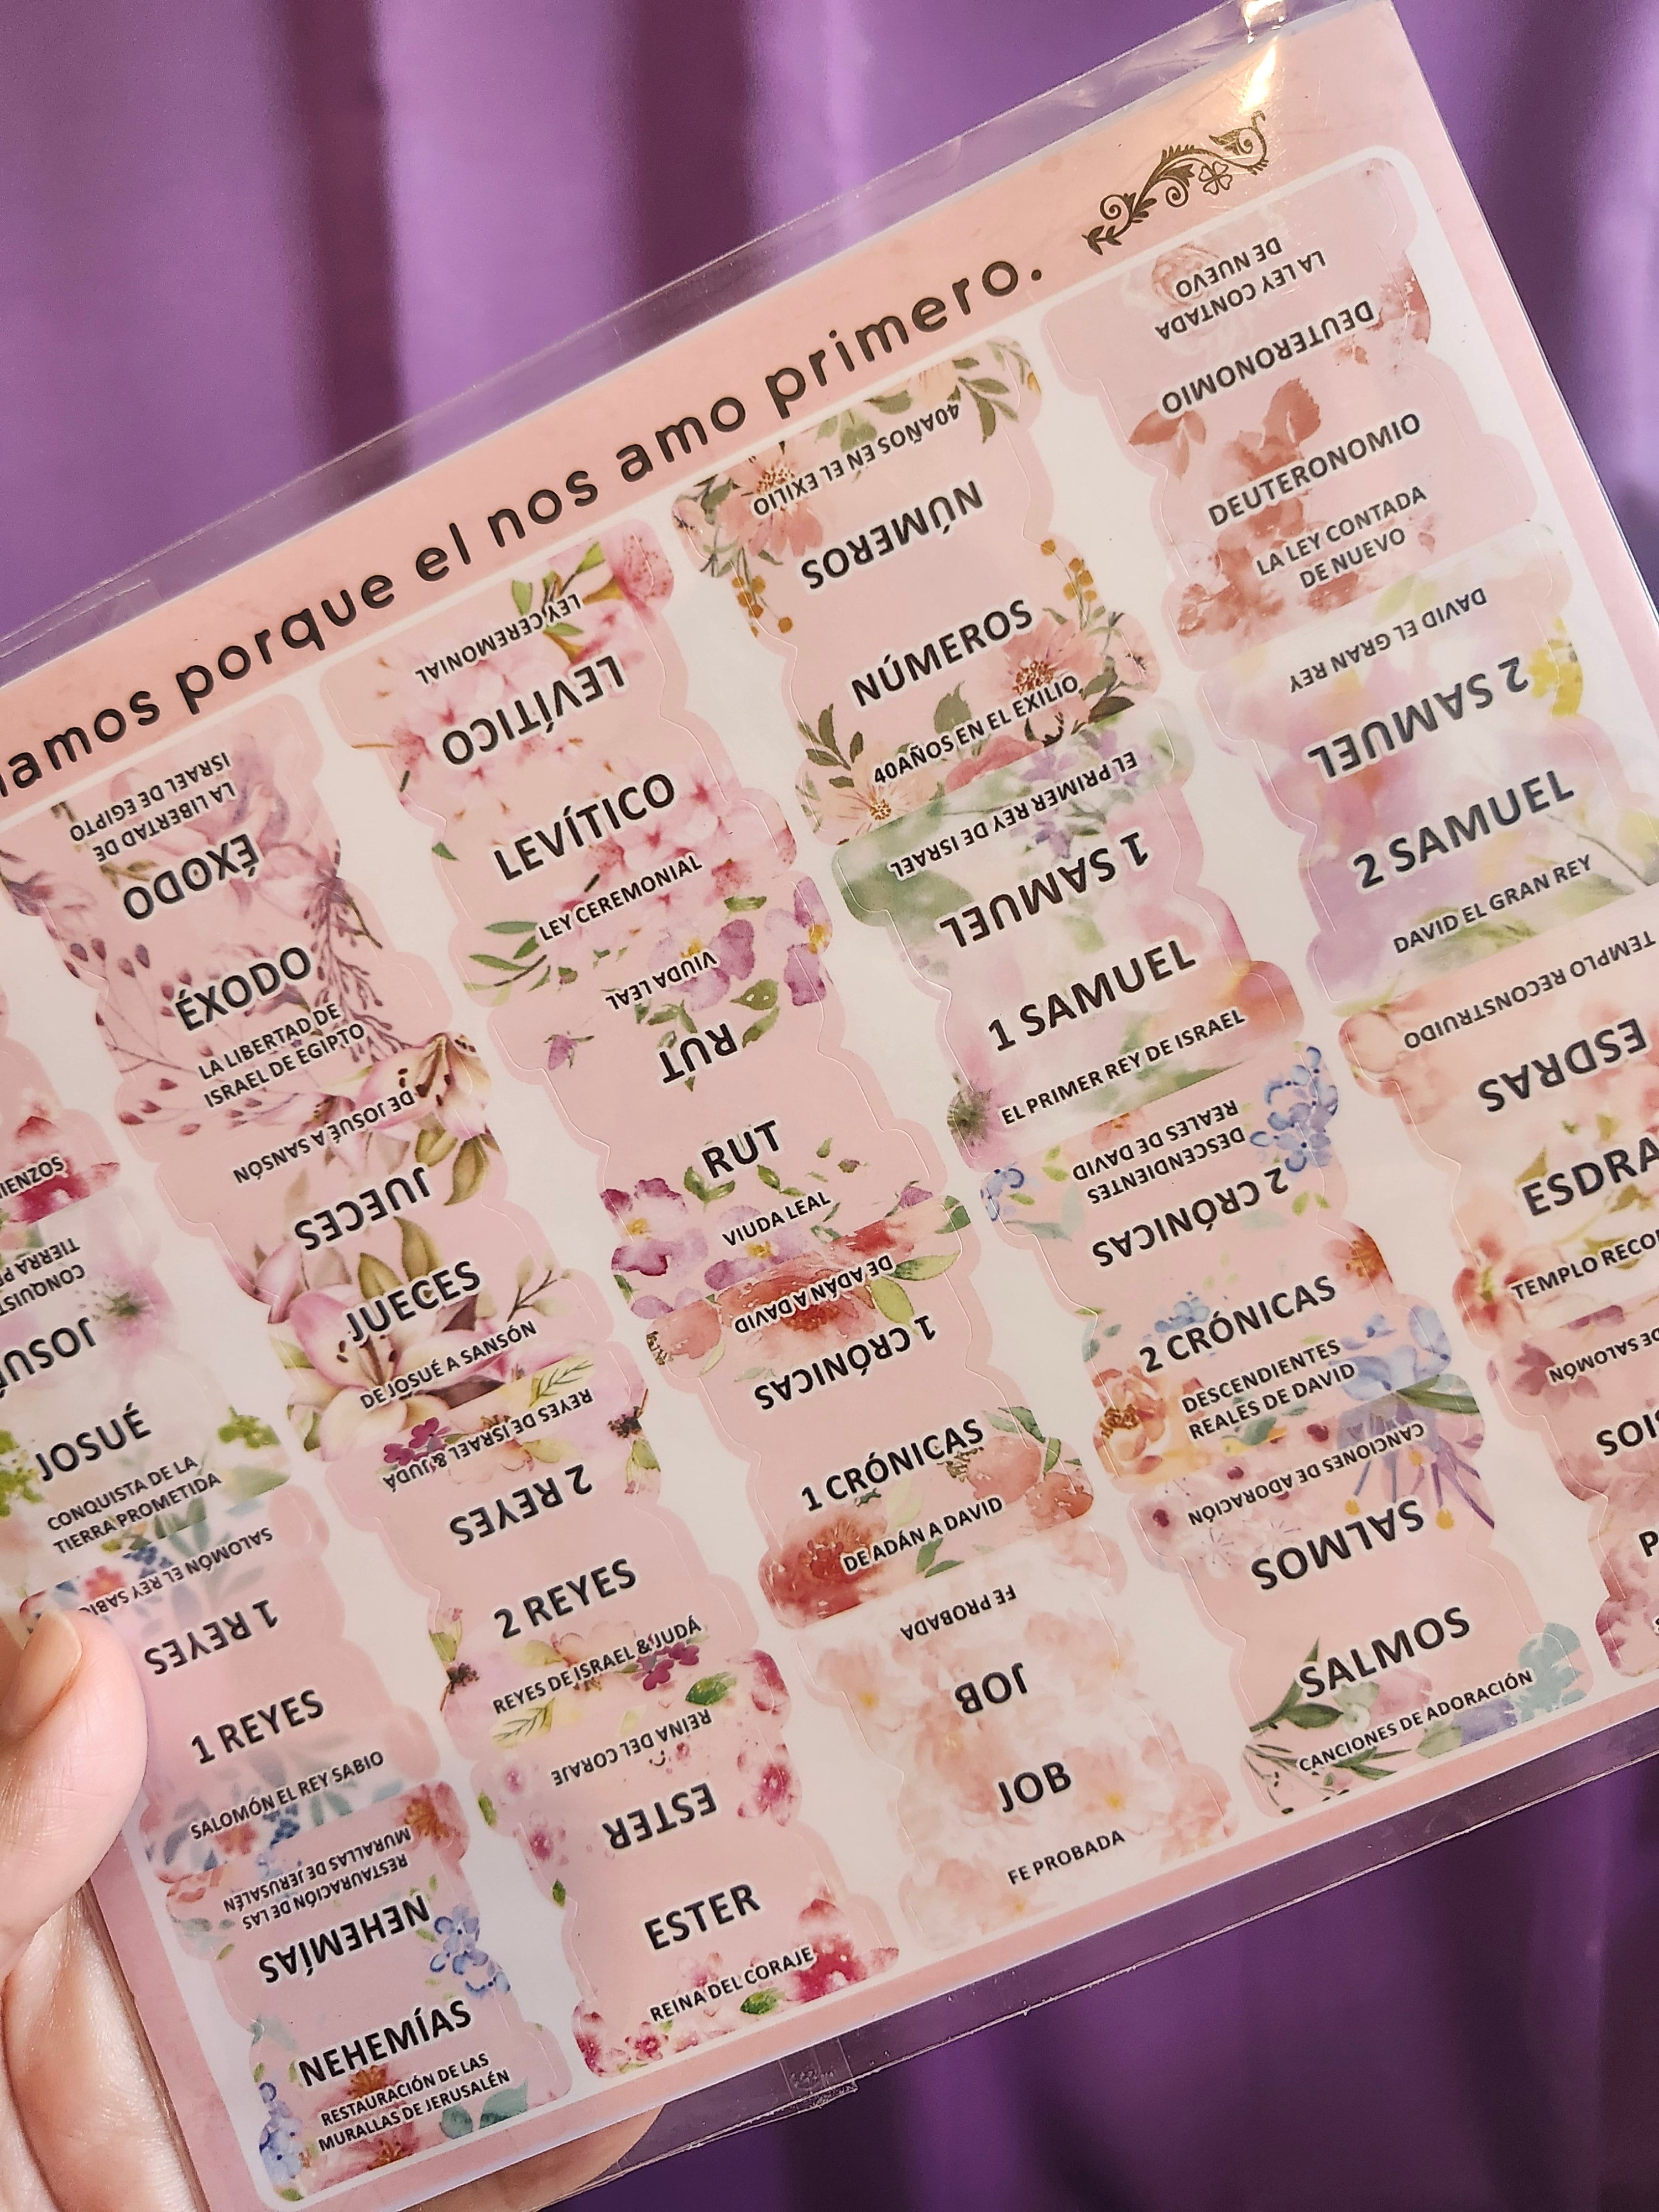 amos porque el nos amo primero.
LA LIBERTAD DE
ISRAEL DE EGIPTO
ÉXODO
ÉXODO
LA LIBERTAD DE
ISRAEL DE EGIPTO
LEY CEREMONIAL
LEVÍTICO
LEVÍTICO
LEY CEREMONIAL
40AÑOS EN EL EXILIO
NÚMEROS
NÚMEROS
40AÑOS EN EL EXILIO
LA LEY CONTADA
DE NUEVO
DEUTERONOMIO
DEUTERONOMIO
LA LEY CONTADA
DE NUEVO
JOSUÉ
CONQUISTA DE LA
TIERRA PROMETIDA
DE JOSUÉ A SANSÓN
JUECES
JUECES
DE JOSUÉ A SANSÓN
VIUDA LEAL
RUT
RUT
VIUDA LEAL
EL PRIMER REY DE ISRAEL
1 SAMUEL
1 SAMUEL
EL PRIMER REY DE ISRAEL
DAVID EL GRAN REY
2 SAMUEL
2 SAMUEL
DAVID EL GRAN REY
SALOMÓN EL REY SABIO
1 REYES
1 REYES
SALOMÓN EL REY SABIO
REYES DE ISRAEL & JUDÁ
2 REYES
2 REYES
REYES DE ISRAEL & JUDÁ
DE ADÁN A DAVID
1 CRÓNICAS
1 CRÓNICAS
DE ADÁN A DAVID
DESCENDIENTES
REALES DE DAVID
2 CRÓNICAS
2 CRÓNICAS
DESCENDIENTES
REALES DE DAVID
TEMPLO RECONSTRUIDO
ESDRAS
ESDRA
TEMPLO RECO
RESTAURACIÓN DE LAS
MURALLAS DE JERUSALÉN
NEHEMÍAS
NEHEMÍAS
RESTAURACIÓN DE LAS
MURALLAS DE JERUSALÉN
REINA DEL CORAJE
ESTER
ESTER
REINA DEL CORAJE
FE PROBADA
JOB
JOB
FE PROBADA
CANCIONES DE ADORACIÓN
SALMOS
SALMOS
CANCIONES DE ADORACIÓN
DE SALOMÓN